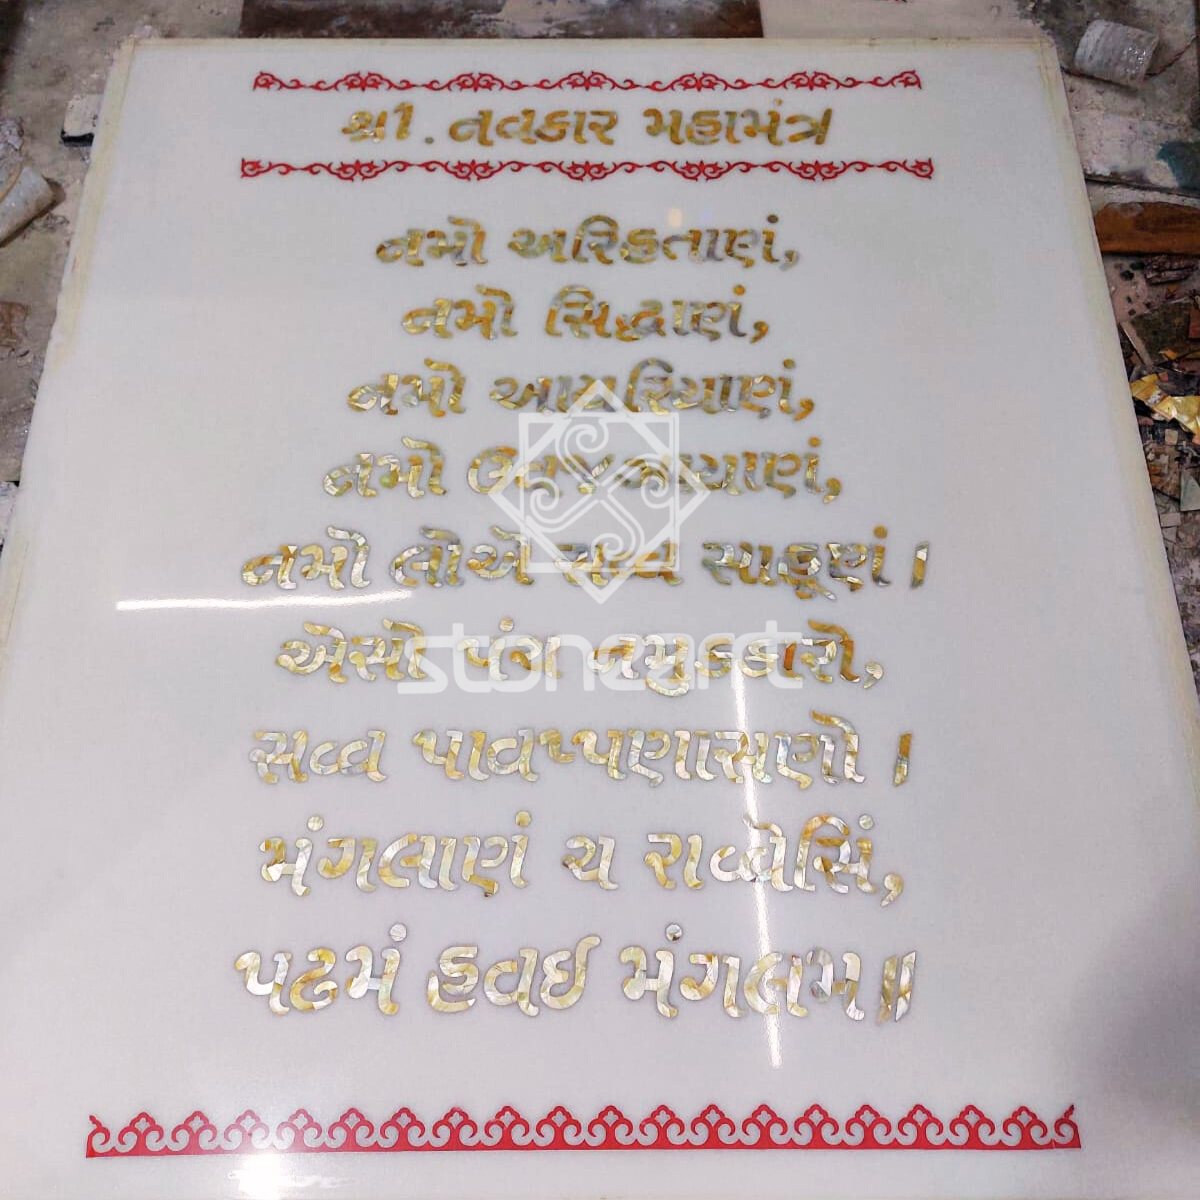 શ્રી. નવકાર મહામંત્ર
નમો અરિહતાણં,
નમો સિદ્ધાણં,
નમો આયરિયાણં,
નમો ઉવજ્ઝાયાણં,
નમો લોએ સવ્વ સાહૂણં।
stoneart
એસો પંચ નમુક્કારો,
સવ્વ પાવપ્પણાસણો।
મંગલાણં ચ સવ્વેસિં,
પઢમં હવઈ મંગલમ॥